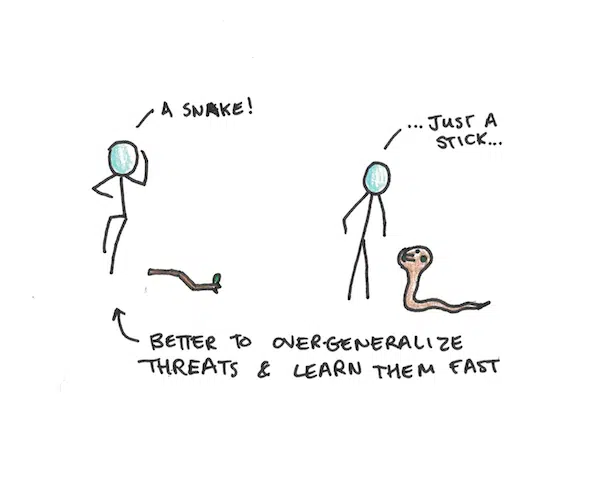 A SNAKE!
... JUST A
STICK...
BETTER TO OVER-GENERALIZE
THREATS & LEARN THEM FAST